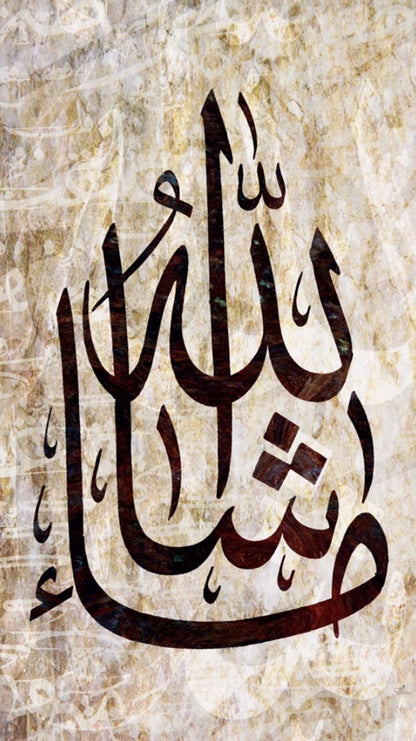 ما شاء اللّٰهُ